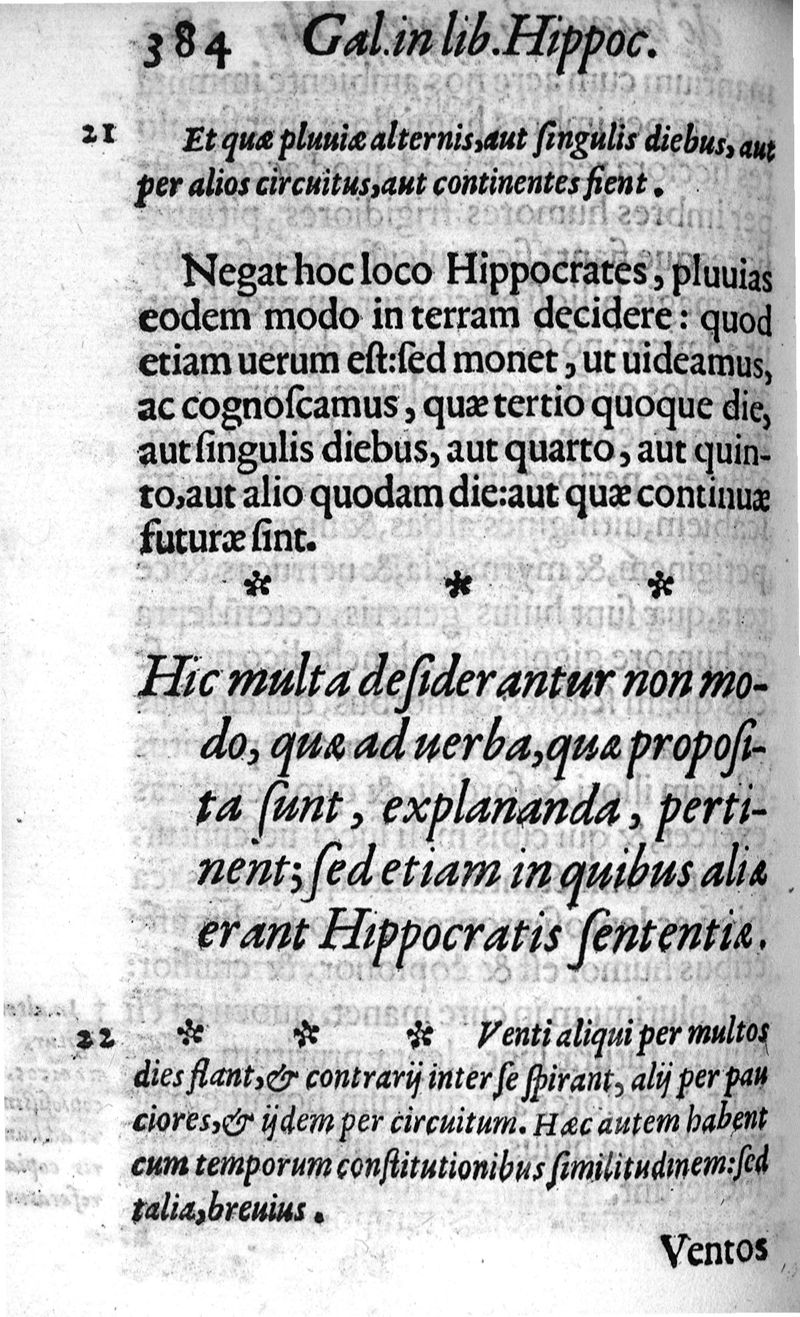 384 Gal.in lib.Hippoc.
21 Et quæ pluuiæ alternis,aut ſingulis diebus, aut
per alios circuitus,aut continentes fient .
Negat hoc loco Hippocrates, pluuias
eodem modo in terram decidere: quod
etiam uerum eſt:ſed monet, ut uideamus,
ac cognoſcamus, quæ tertio quoque die,
aut ſingulis diebus, aut quarto, aut quin-
to,aut alio quodam die:aut quæ continuæ
futuræ ſint.
* * *
Hic multa deſiderantur non mo-
do, quæ ad uerba,quæ propoſi-
ta ſunt, explananda, perti-
nent; ſed etiam in quibus aliæ
erant Hippocratis ſententiæ.
22 * * * Venti aliqui per multos
dies flant,& contrarij inter ſe ſpirant, alij per pau
ciores,& ijdem per circuitum. Hæc autem habent
cum temporum conſtitutionibus ſimilitudinem:ſed
talia,breuius .
Ventos